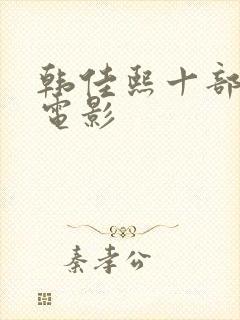 韩佳熙十部
電影
秦孝公